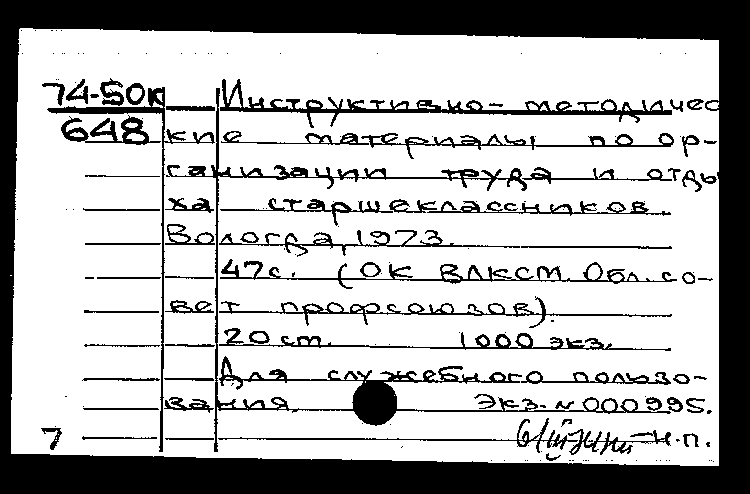 74-50к Инструктивно-методичес
648 кие материалы по ор-
ганизации труда и отды
ха старшеклассников.
Вологда, 1973.
47с. (ОК ВЛКСМ. Обл. со-
вет профсоюзов).
20 ст. 1000 экз.
Для служебного пользо-
вания. Экз. № 000995.
7 н.п.